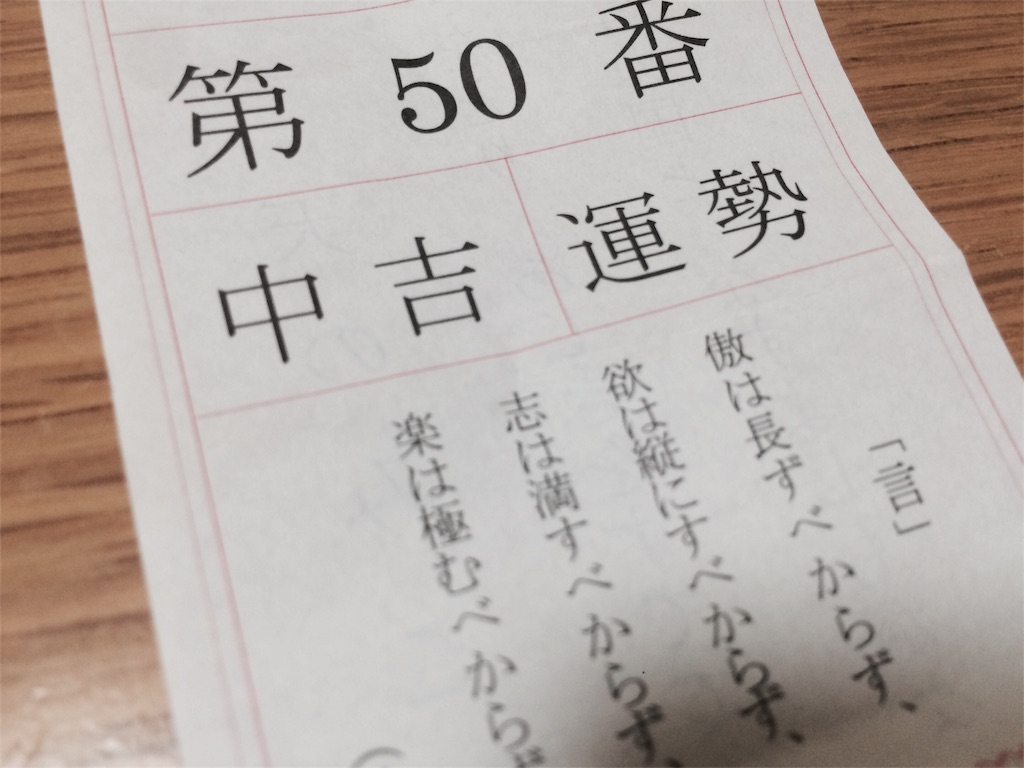 第50番
運勢
中吉
「言」
傲は長ずべからず、
欲は縦にすべからず、
志は満すべからず、
楽は極むべからず